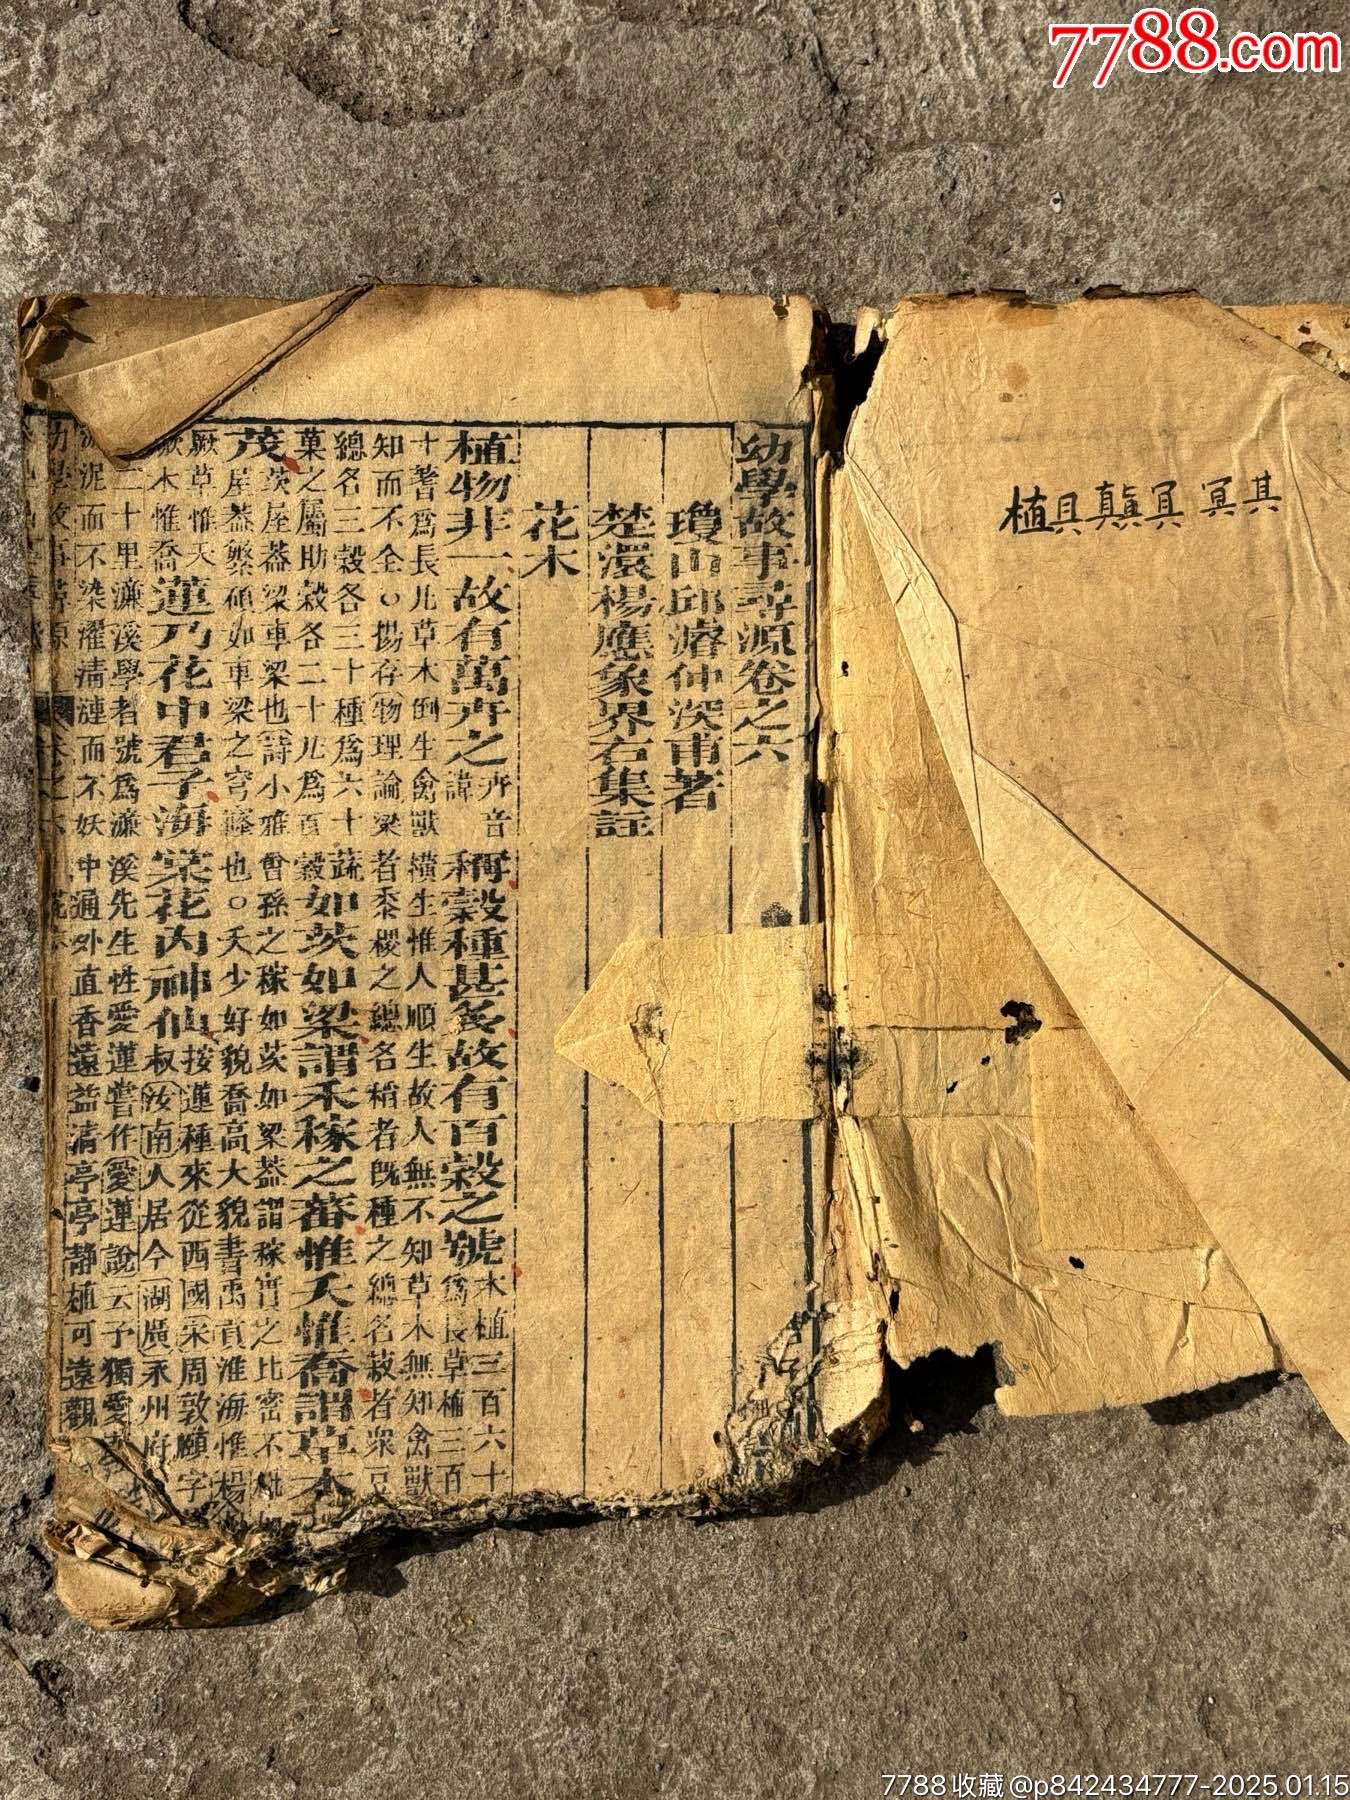 7788.com
植具顛冥冥其
幼學故事尋源卷之六
瓊山邱濬仲深甫著
楚澴楊應象界右集註
花木
植物非一故有萬卉之 卉音諱 稱穀種甚多故有百穀之號 木植三百六十
為長草植三百
十蓍為長凡草木倒生禽獸橫生惟人順生故人無不知草木無知禽獸
知而不全○楊存物理論梁者黍稷之總名稻者既種之總名菽者衆豆
總名三穀各三十種為六十蔬
菓之屬助穀各二十凡為百穀 如茨如梁謂禾稼之蕃惟夭惟喬謂草木
茂 茨屋蓋梁車梁也詩小雅曾孫之稼如茨如梁蓋謂稼穡之比密不
屋蓋繁碩如車梁之穹窿也○夭少好貌喬高大貌書禹貢淮海惟楊
厥草惟夭
厥木惟喬 蓮乃花中君子海棠花內神仙 按蓮種來從西國宋周敦頤字
叔汝南人居今湖廣永州府
二十里濂溪學者號為濂溪先生性愛蓮嘗作愛蓮說云予獨愛
泥而不染濯清漣而不妖中通外直香遠益清亭亭靜植可遠觀
7788收藏@p842434777-2025.01.15